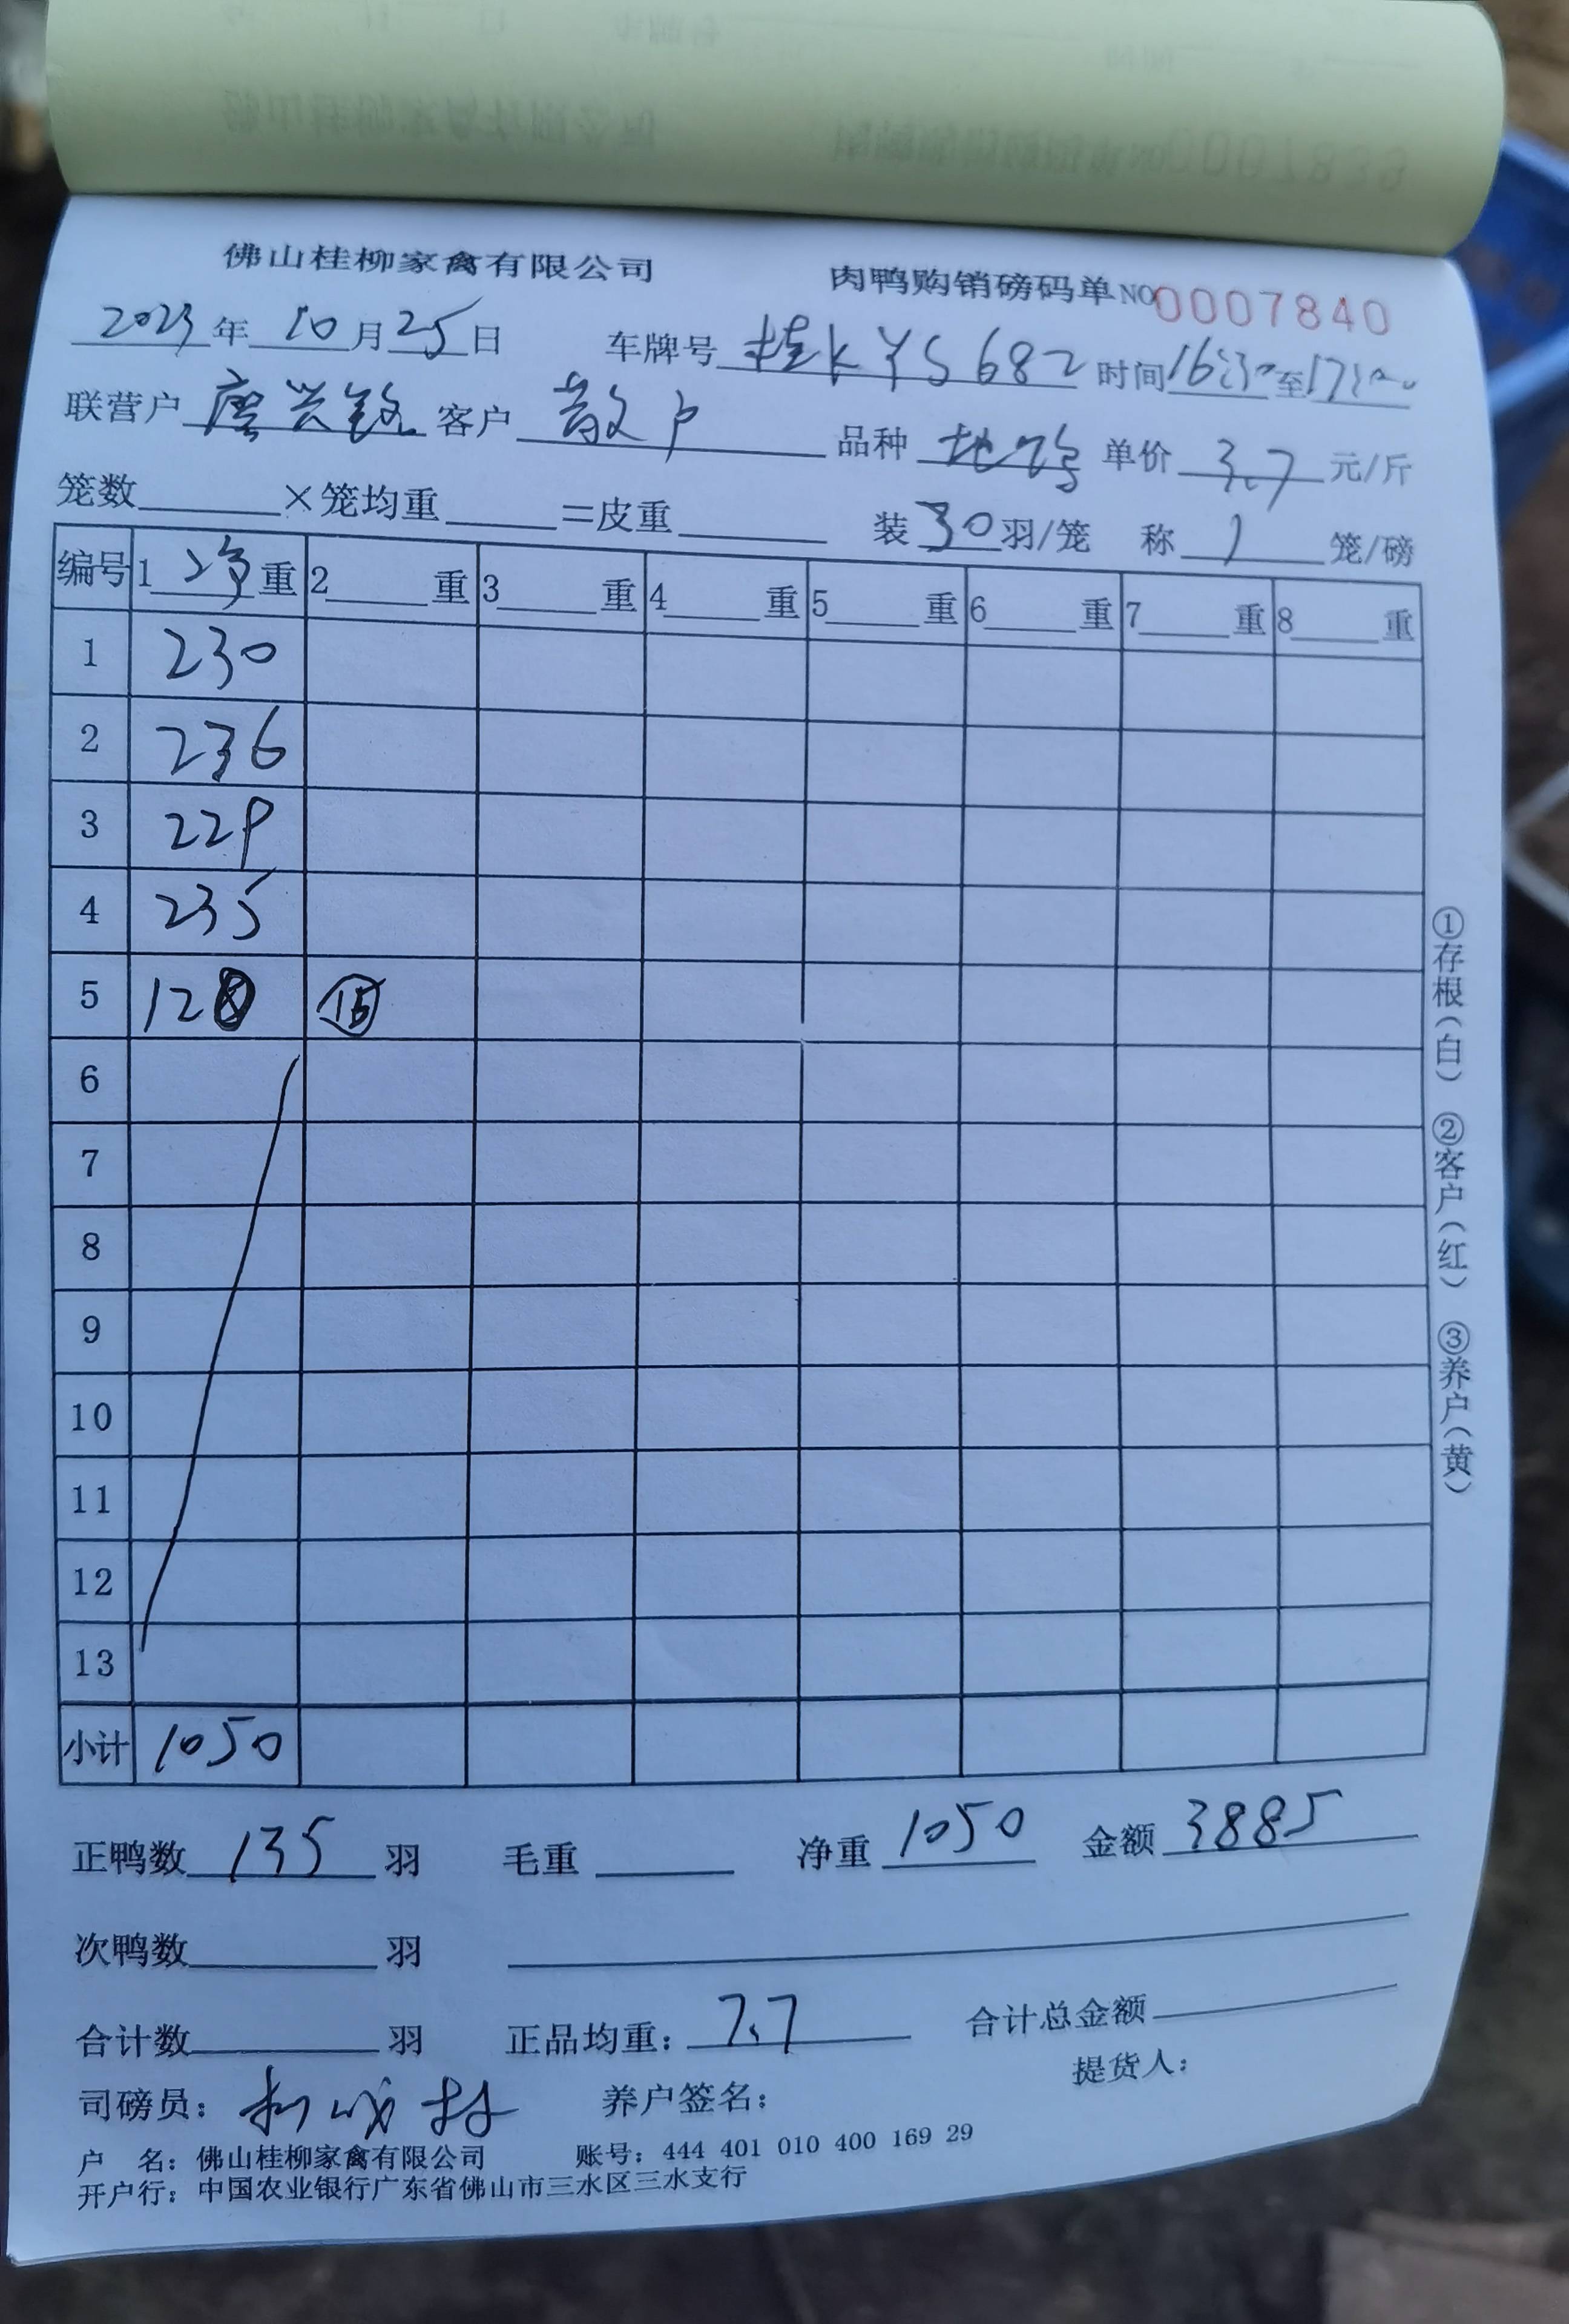 佛山桂柳家禽有限公司 肉鸭购销磅码单 NO 0007840
2023年 10月25日 车牌号 桂KYS682 时间16:30至17:20
联营户 客户 散户 品种 单价 3.7 元/斤
笼数 ×笼均重 =皮重 装30羽/笼 称 1 笼/磅
编号 1 净重 2 重 3 重 4 重 5 重 6 重 7 重 8 重
1 230
2 236
3 229
4 235
5 120 ⑮
6
7
8
9
10
11
12
13
小计 1050
正鸭数 135 羽 毛重 净重 1050 金额 3885
次鸭数 羽
合计数 羽 正品均重: 7.7 合计总金额
司磅员: 养户签名: 提货人:
户 名: 佛山桂柳家禽有限公司 账号: 444 401 010 400 169 29
开户行: 中国农业银行广东省佛山市三水区三水支行
①存根(白) ②客户(红) ③养户(黄)